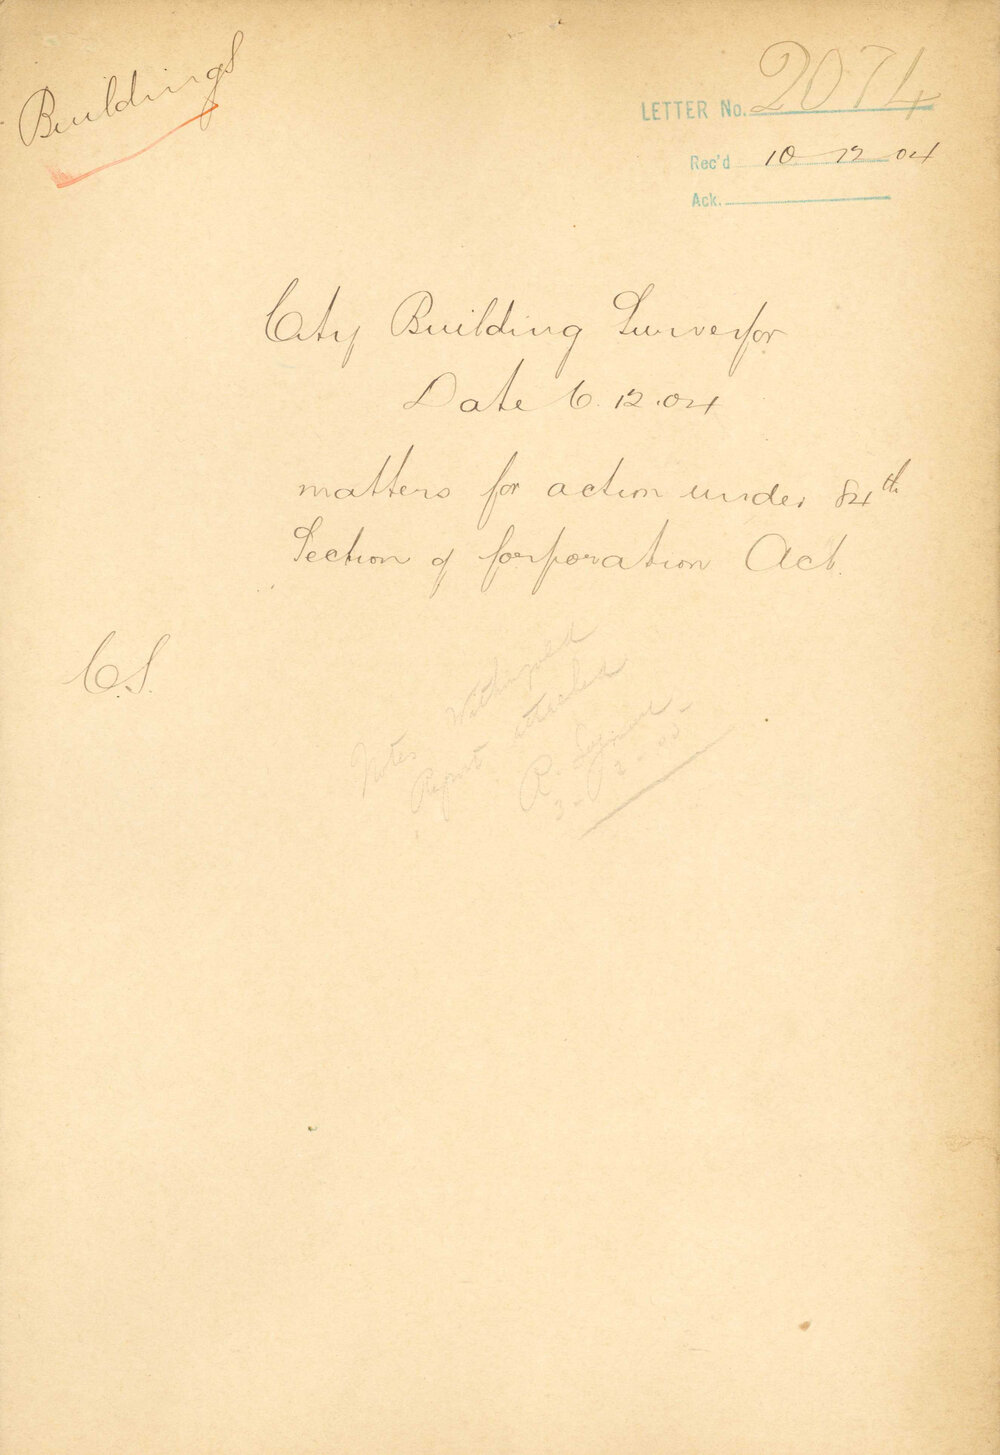 Buildings
LETTER No. 2074
Rec'd 10 12 04
Ack.
City Building Surveyor
Date 6.12.04
matters for action under 84th
Section of Corporation Act.
C.S.
Notes Withdrawn
Report attached
R.
3-2-